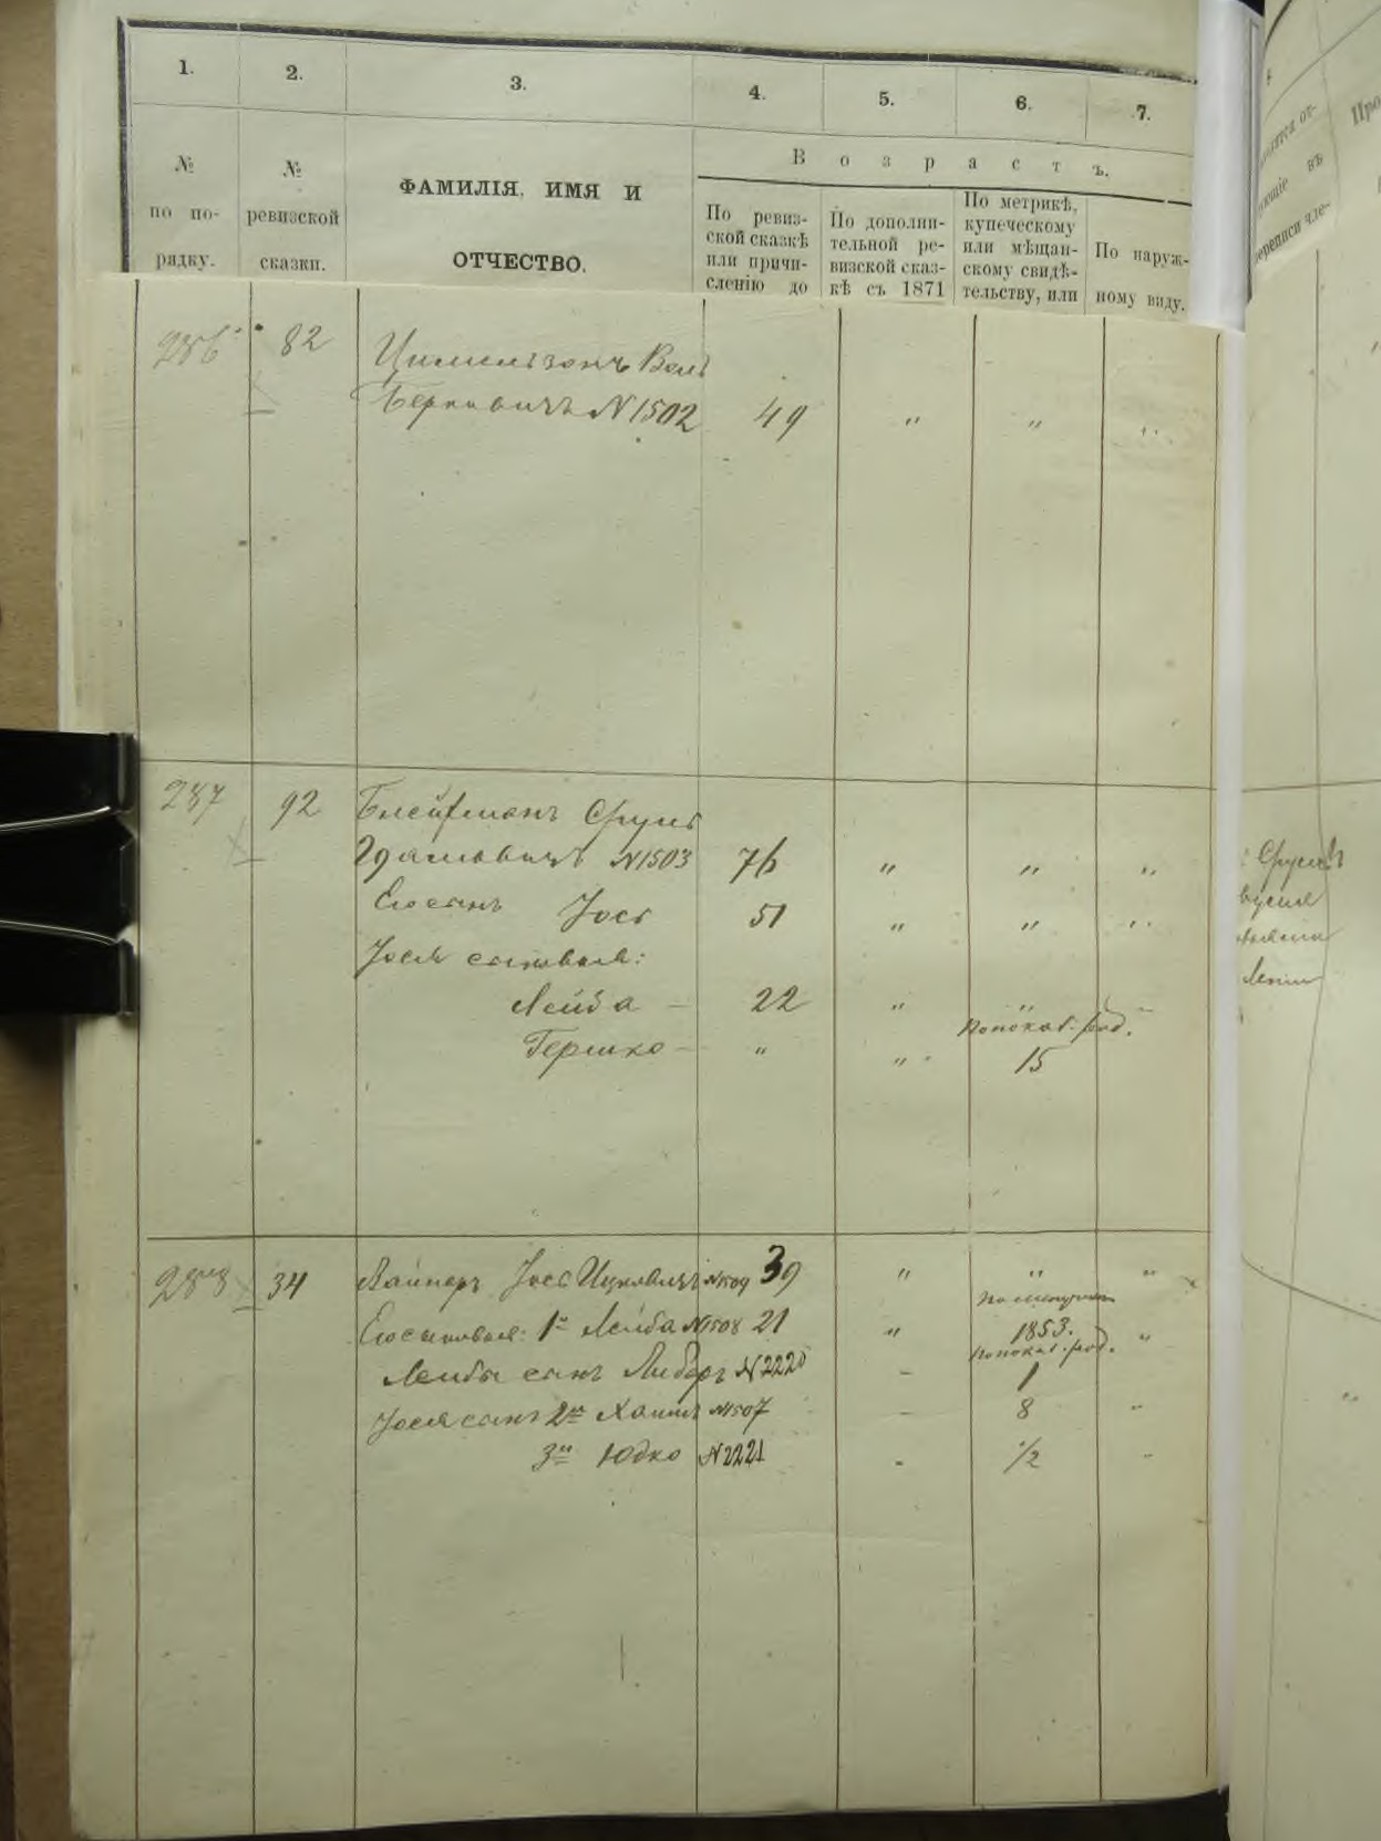 1. 2. 3. 4. 5. 6. 7.
№ по по-рядку.
№ ревизской сказки.
ФАМИЛІЯ, ИМЯ И
ОТЧЕСТВО.
Возрастъ.
По ревиз-
ской сказкѣ
или причи-
сленію до
По дополни-
тельной ре-
визской сказ-
кѣ съ 1871
По метрикѣ,
купеческому
или мѣщан-
скому свидѣ-
тельству, или
По наруж-
ному виду.
286 82 Вол
Берковичъ N 1502 49 " " "
287 92 Срулъ
N1503 76 " " "
Его сынъ Іось 51 " " "
Іося сыновья:
Лейба — 22 " "
по показ. род.
Гершко — " " 15
288 34 Вайнеръ Іось Ицковичъ N1509 39 " " "
Его сыновья: 1й Лейба N1508 21 " 1853. "
по показ. род.
Лейбы сынъ Либеръ N2220 – 1
Іося сынъ 2й Хаимъ N1507 – 8 "
3й Юдко N2221 - 1/2 -